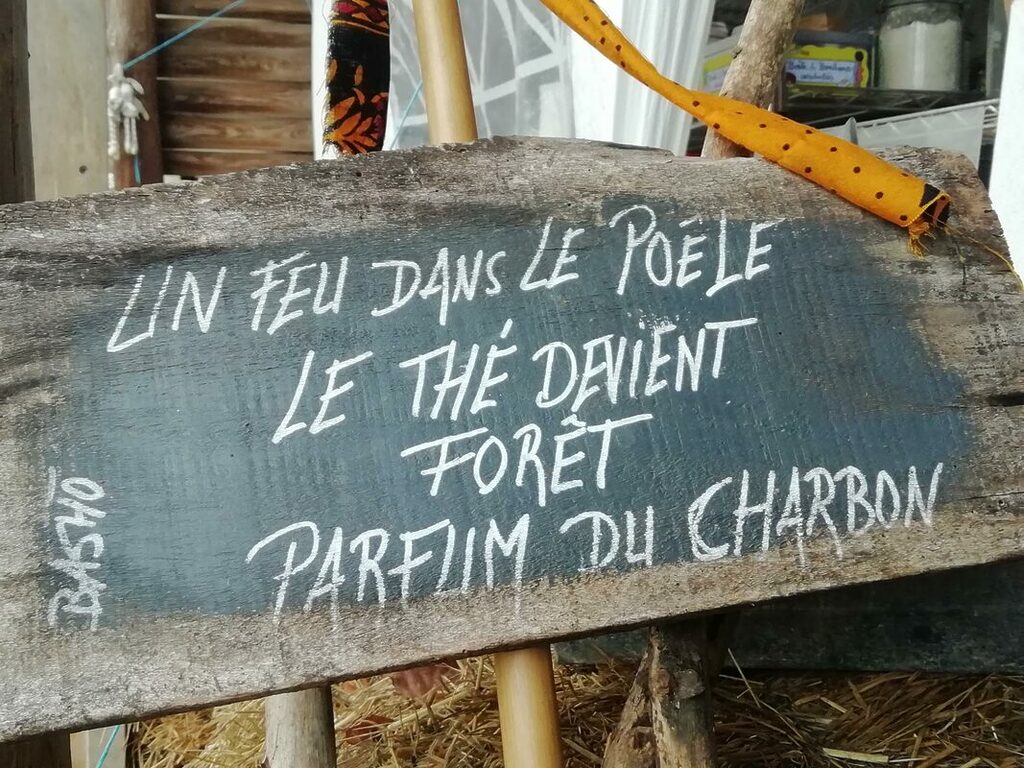 UN FEU DANS LE POÊLE
LE THÉ DEVIENT
FORÊT
PARFUM DU CHARBON
BASHŌ